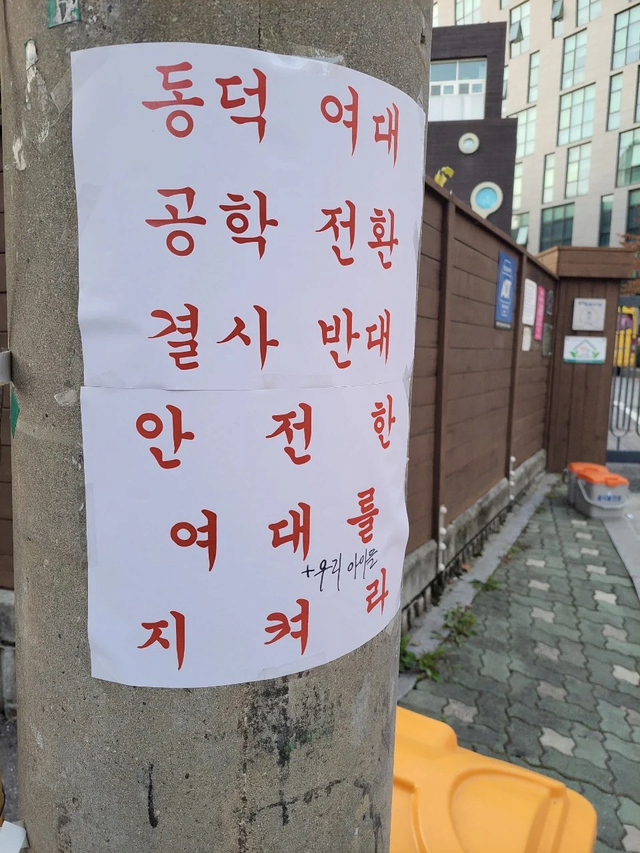 동덕 여대
공학 전환
결사 반대
안 전 한
여 대 를
+우리 아이들
지 켜 라